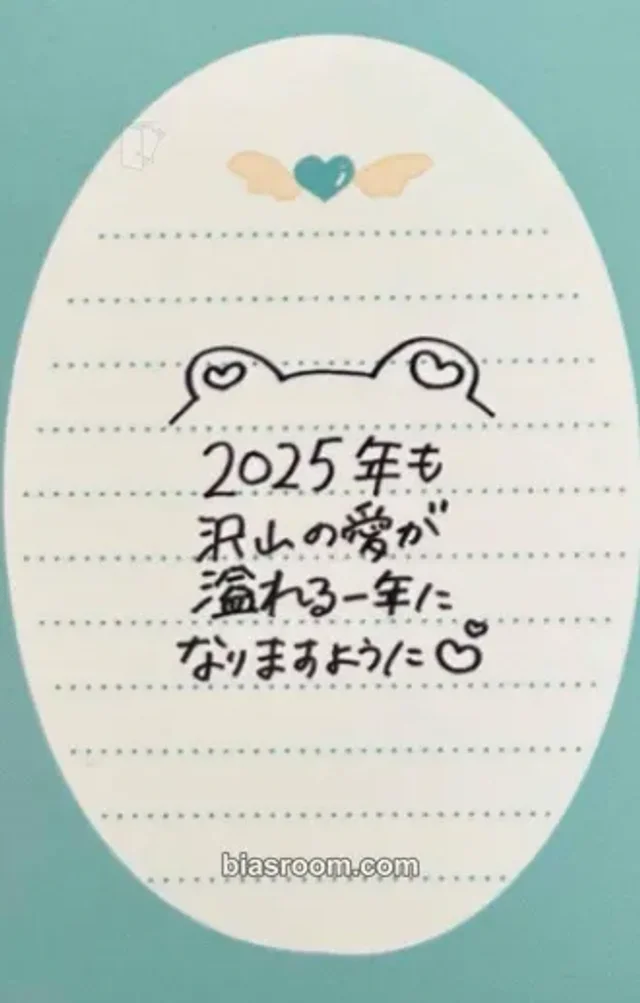 2025年も
沢山の愛が
溢れる一年に
なりますように♡♡
biasroom.com